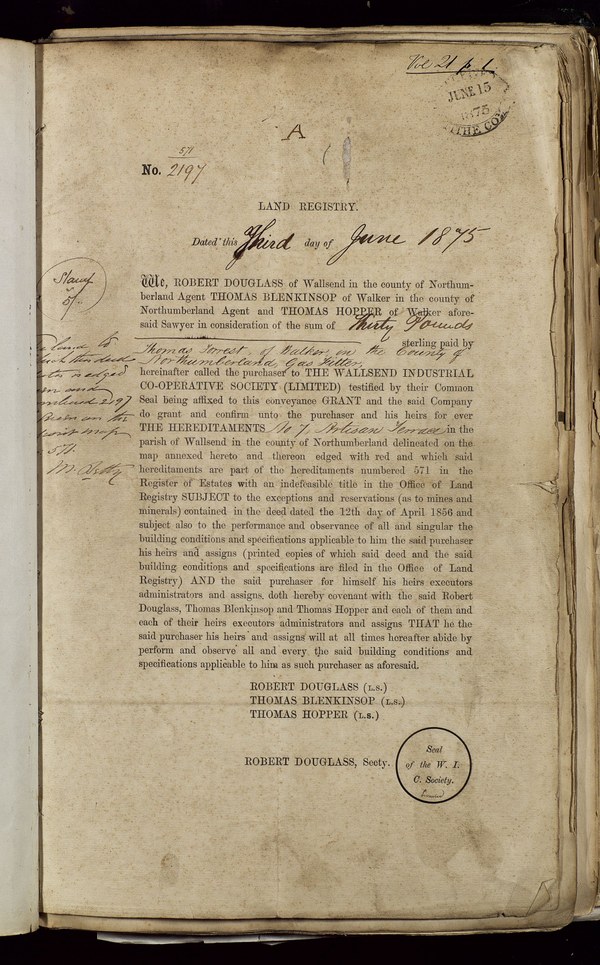 Vol 21 p. 1
JUNE 15
1875
A
571
No. 2197
LAND REGISTRY.
Dated this Third day of June 1875
We, ROBERT DOUGLASS of Wallsend in the county of Northum-
berland Agent THOMAS BLENKINSOP of Walker in the county of
Northumberland Agent and THOMAS HOPPER of Walker afore-
said Sawyer in consideration of the sum of Thirty Pounds
sterling paid by
Thomas Forrest of Walker in the County of
Northumberland, Gas Fitter,
hereinafter called the purchaser to THE WALLSEND INDUSTRIAL
CO-OPERATIVE SOCIETY (LIMITED) testified by their Common
Seal being affixed to this conveyance GRANT and the said Company
do grant and confirm unto the purchaser and his heirs for ever
THE HEREDITAMENTS No 7, Artisan Terrace, in the
parish of Wallsend in the county of Northumberland delineated on the
map annexed hereto and thereon edged with red and which said
hereditaments are part of the hereditaments numbered 571 in the
Register of Estates with an indefeasible title in the Office of Land
Registry SUBJECT to the exceptions and reservations (as to mines and
minerals) contained in the deed dated the 12th day of April 1856 and
subject also to the performance and observance of all and singular the
building conditions and specifications applicable to him the said purchaser
his heirs and assigns (printed copies of which said deed and the said
building conditions and specifications are filed in the Office of Land
Registry) AND the said purchaser for himself his heirs executors
administrators and assigns doth hereby covenant with the said Robert
Douglass, Thomas Blenkinsop and Thomas Hopper and each of them and
each of their heirs executors administrators and assigns THAT he the
said purchaser his heirs and assigns will at all times hereafter abide by
perform and observe all and every the said building conditions and
specifications applicable to him as such purchaser as aforesaid.
ROBERT DOUGLASS (L.S.)
THOMAS BLENKINSOP (L.S.)
THOMAS HOPPER (L.S.)
ROBERT DOUGLASS, Secty.
Seal
of the W. I.
C. Society.
Limited
Stamp
5/-
land to
this deed
edged
and
2197
on the
map
571